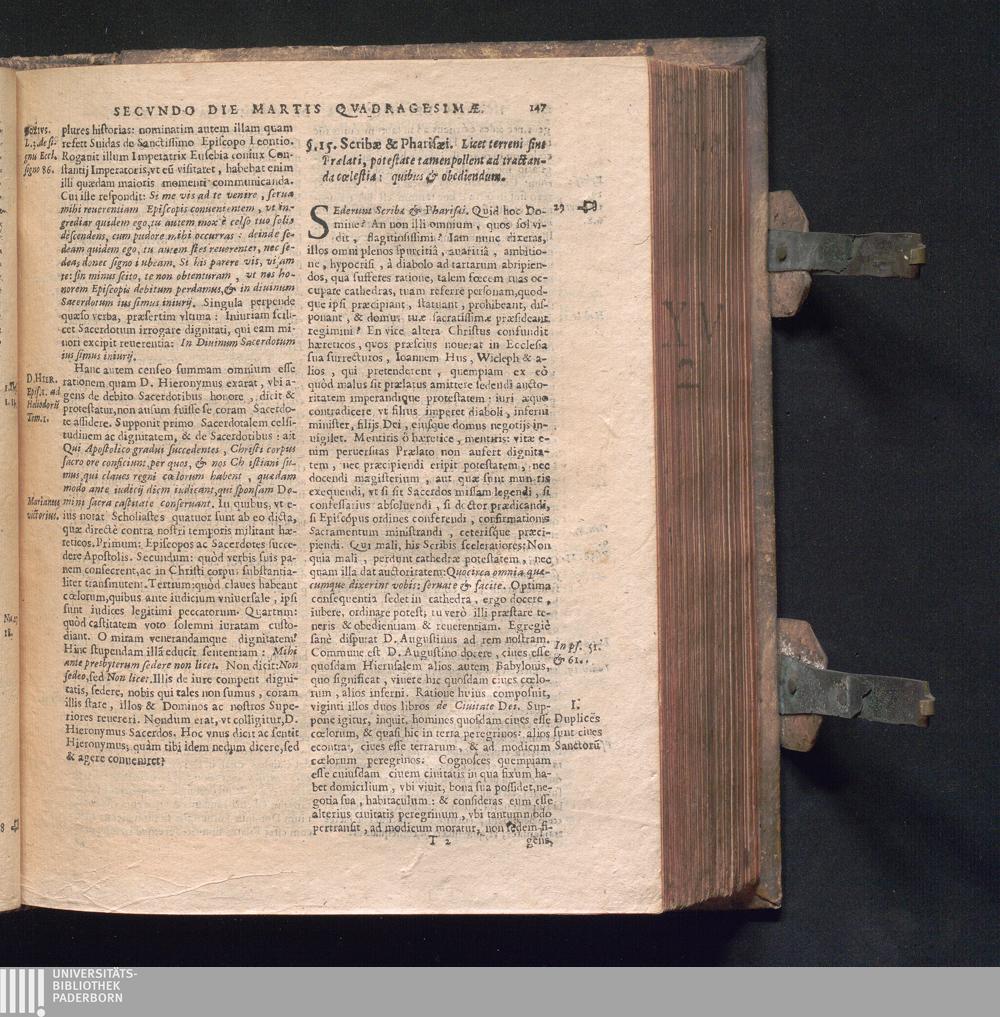 SECVNDO DIE MARTIS QVADRAGESIMÆ. 147
plures historias: nominatim autem illam quam
refert Suidas de Sanctissimo Episcopo Leontio.
Rogauit illum Imperatrix Eusebia coniux Con-
stantij Imperatoris, vt eū visitaret, habebat enim
illi quædam maioris momenti communicanda.
Cui ille respondit: Si me vis ad te venire, serua
mihi reuerentiam Episcopis conuenientem, vt in-
grediar quidem ego, tu autem mox è celso tuo solio
descendens, cum pudore mihi occurras: deinde se-
deam quidem ego, tu autem stes reuerenter, nec se-
deas, donec signo iubeam. Si his parere vis, visam
te: sin minus scito, te non obtenturam, vt nos ho-
norem Episcopis debitum perdamus, & in diuinum
Sacerdotum ius simus iniurij. Singula perpende
quæso verba, præsertim vltima: Iniuriam scili-
cet Sacerdotum irrogare dignitati, qui eam mi-
nori excipit reuerentia: In Diuinum Sacerdotum
ius simus iniurij.
Hanc autem censeo summam omnium esse
rationem quam D. Hieronymus exarat, vbi a-
gens de debito Sacerdotibus honore, dicit &
protestatur, non ausum fuisse se coram Sacerdo-
te assidere. Supponit primo Sacerdotalem celsi-
tudinem ac dignitatem, & de Sacerdotibus: ait
Qui Apostolico gradui succedentes, Christi corpus
sacro ore conficiunt, per quos, & nos Christiani su-
mus, qui claues regni cœlorum habent, quædam
modo ante iudicij diem iudicant, qui sponsam Do-
mini sacra castitate conseruant. In quibus, vt e-
ius notat Scholiastes quatuor sunt ab eo dicta,
quæ directè contra nostri temporis militant hæ-
reticos. Primum: Episcopos ac Sacerdotes succe-
dere Apostolis. Secundum: quòd verbis suis pa-
nem consecrent, ac in Christi corpus substantia-
liter transmutent. Tertium: quòd claues habeant
cœlorum, quibus ante iudicium vniuersale, ipsi
sunt iudices legitimi peccatorum. Quartum:
quòd castitatem voto solemni iuratam custo-
diant. O miram venerandamque dignitatem!
Hinc stupendam illā educit sententiam: Mihi
ante presbyterum sedere non licet. Non dicit: Non
sedeo, sed Non licet. Illis de iure competit digni-
tatis, sedere, nobis qui tales non sumus, coram
illis stare, illos & Dominos ac nostros Supe-
riores reuereri. Nondum erat, vt colligitur, D.
Hieronymus Sacerdos. Hoc vnus dicit ac sentit
Hieronymus, quàm tibi idem nedum dicere, sed
& agere conueniret?
L. 3. de si-
gnu Eccl.
signo 86.
D. HIER.
Epist. 1. ad
Heliodorū
Tom. 1.
Marianus
victorius.
§. 15. Scribæ & Pharisæi. Licet terreni sint
Prælati, potestate tamen pollent ad tractan-
da cœlestia: quibus & obediendum.
SEderunt Scribæ & Pharisæi. Quid hoc Do-
mine? An non illi omnium, quos sol vi-
dit, flagitiosissimi? Iam nunc dixeras,
illos omni plenos spurcitiâ, auaritiâ, ambitio-
ne, hypocrisi, à diabolo ad tartarum abripien-
dos, qua sufferes ratione, talem fœcem tuas oc-
cupare cathedras, tuam referre personam, quod-
que ipsi præcipiant, statuant, prohibeant, dis-
ponant, & domus tuæ sacratissimæ præsideant
regimini? En vice altera Christus confundit
hæreticos, quos præscius nouerat in Ecclesia
sua surrecturos, Ioannem Hus, Wicleph & a-
lios, qui pretenderent, quempiam ex eò
quòd malus sit prælatus amittere sedendi aucto-
ritatem imperandique protestatem: iuri æquo
contradicere vt filius imperet diaboli, inferni
minister, filijs Dei, eiusque domus negotijs in-
uigilet. Mentiris ô hæretice, mentiris: vitæ e-
nim peruersitas Prælato non aufert dignita-
tem, nec præcipiendi eripit potestatem, nec
docendi magisterium, aut quæ sunt muneris
exequendi, vt si sit Sacerdos missam legendi, si
confessarius absoluendi, si doctor prædicandi,
si Episcopus ordines conferendi, confirmationis
Sacramentum ministrandi, ceterisque præci-
piendi. Qui mali, his Scribis sceleratiores: Non
quia mali, perdunt cathedræ potestatem, nec
quam illa dat auctoritatem: Quocirca omnia quæ-
cumque dixerint vobis: seruate & facite. Optima
consequentia sedet in cathedra, ergo docere,
iubere, ordinare potest, tu verò illi præstare te-
neris & obedientiam & reuerentiam. Egregiè
sanè disputat D. Augustinus ad rem nostram.
Commune est D. Augustino docere, ciues esse
quosdam Hierusalem alios autem Babylonis,
quo significat, viuere hic quosdam ciues cœlo-
rum, alios inferni. Ratione huius composuit,
viginti illos duos libros de Ciuitate Dei. Sup-
pone igitur, inquit, homines quosdam ciues esse
cœlorum, & quasi hic in terra peregrinos: alios
econtra, ciues esse terrarum, & ad modicum
cœlorum peregrinos: Cognosces quempiam
esse cuiusdam ciuem ciuitatis in qua fixum ha-
bet domicilium, vbi viuit, bona sua possidet, ne-
gotia sua, habitaculum: & consideras eum esse
alterius ciuitatis peregrinum, vbi tantummodo
pertransit, ad modicum moratur, non sedem fi-
T 2 gens,
29
In ps. 51.
& 61..
I.
Duplices
sunt ciues
Sanctorū
XV
2
UNIVERSITÄTS-
BIBLIOTHEK
PADERBORN